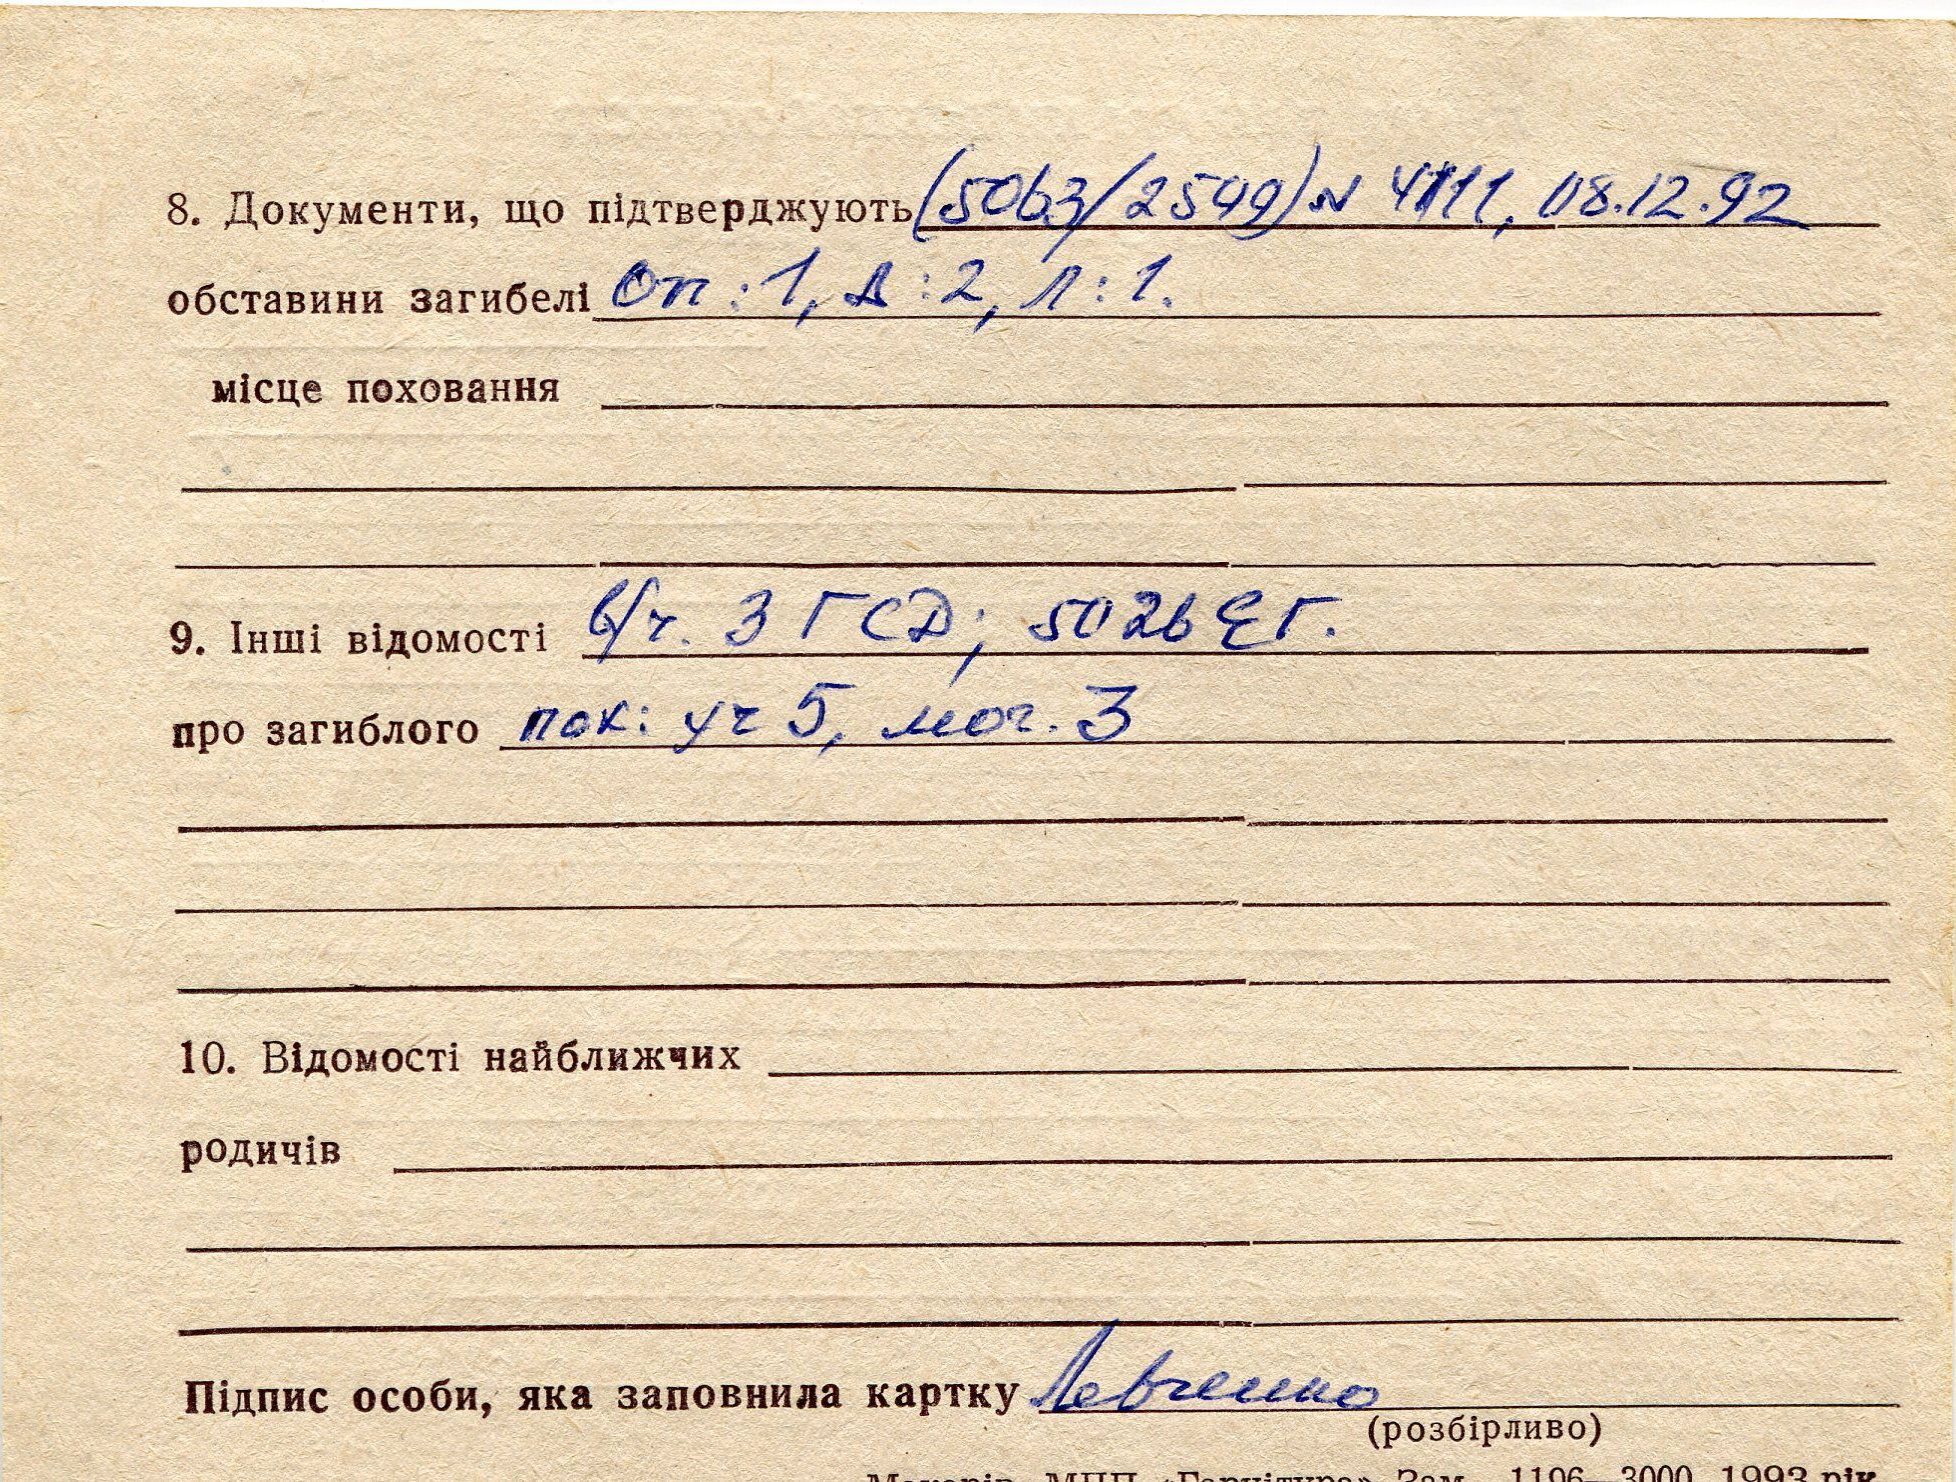 8. Документи, що підтверджують (5063/2549) N 4111, 08.12.92
обставини загибелі Оп: 1, Д: 2, Л: 1.
місце поховання
9. Інші відомості в/ч. 3 ГСД; 5026 ЄГ.
про загиблого пох: уч 5, мог. 3
10. Відомості найближчих
родичів
Підпис особи, яка заповнила картку Левченко
(розбірливо)
Макарів, МПП «Гарнітура» Зам. 1196—3000, 1993 рік